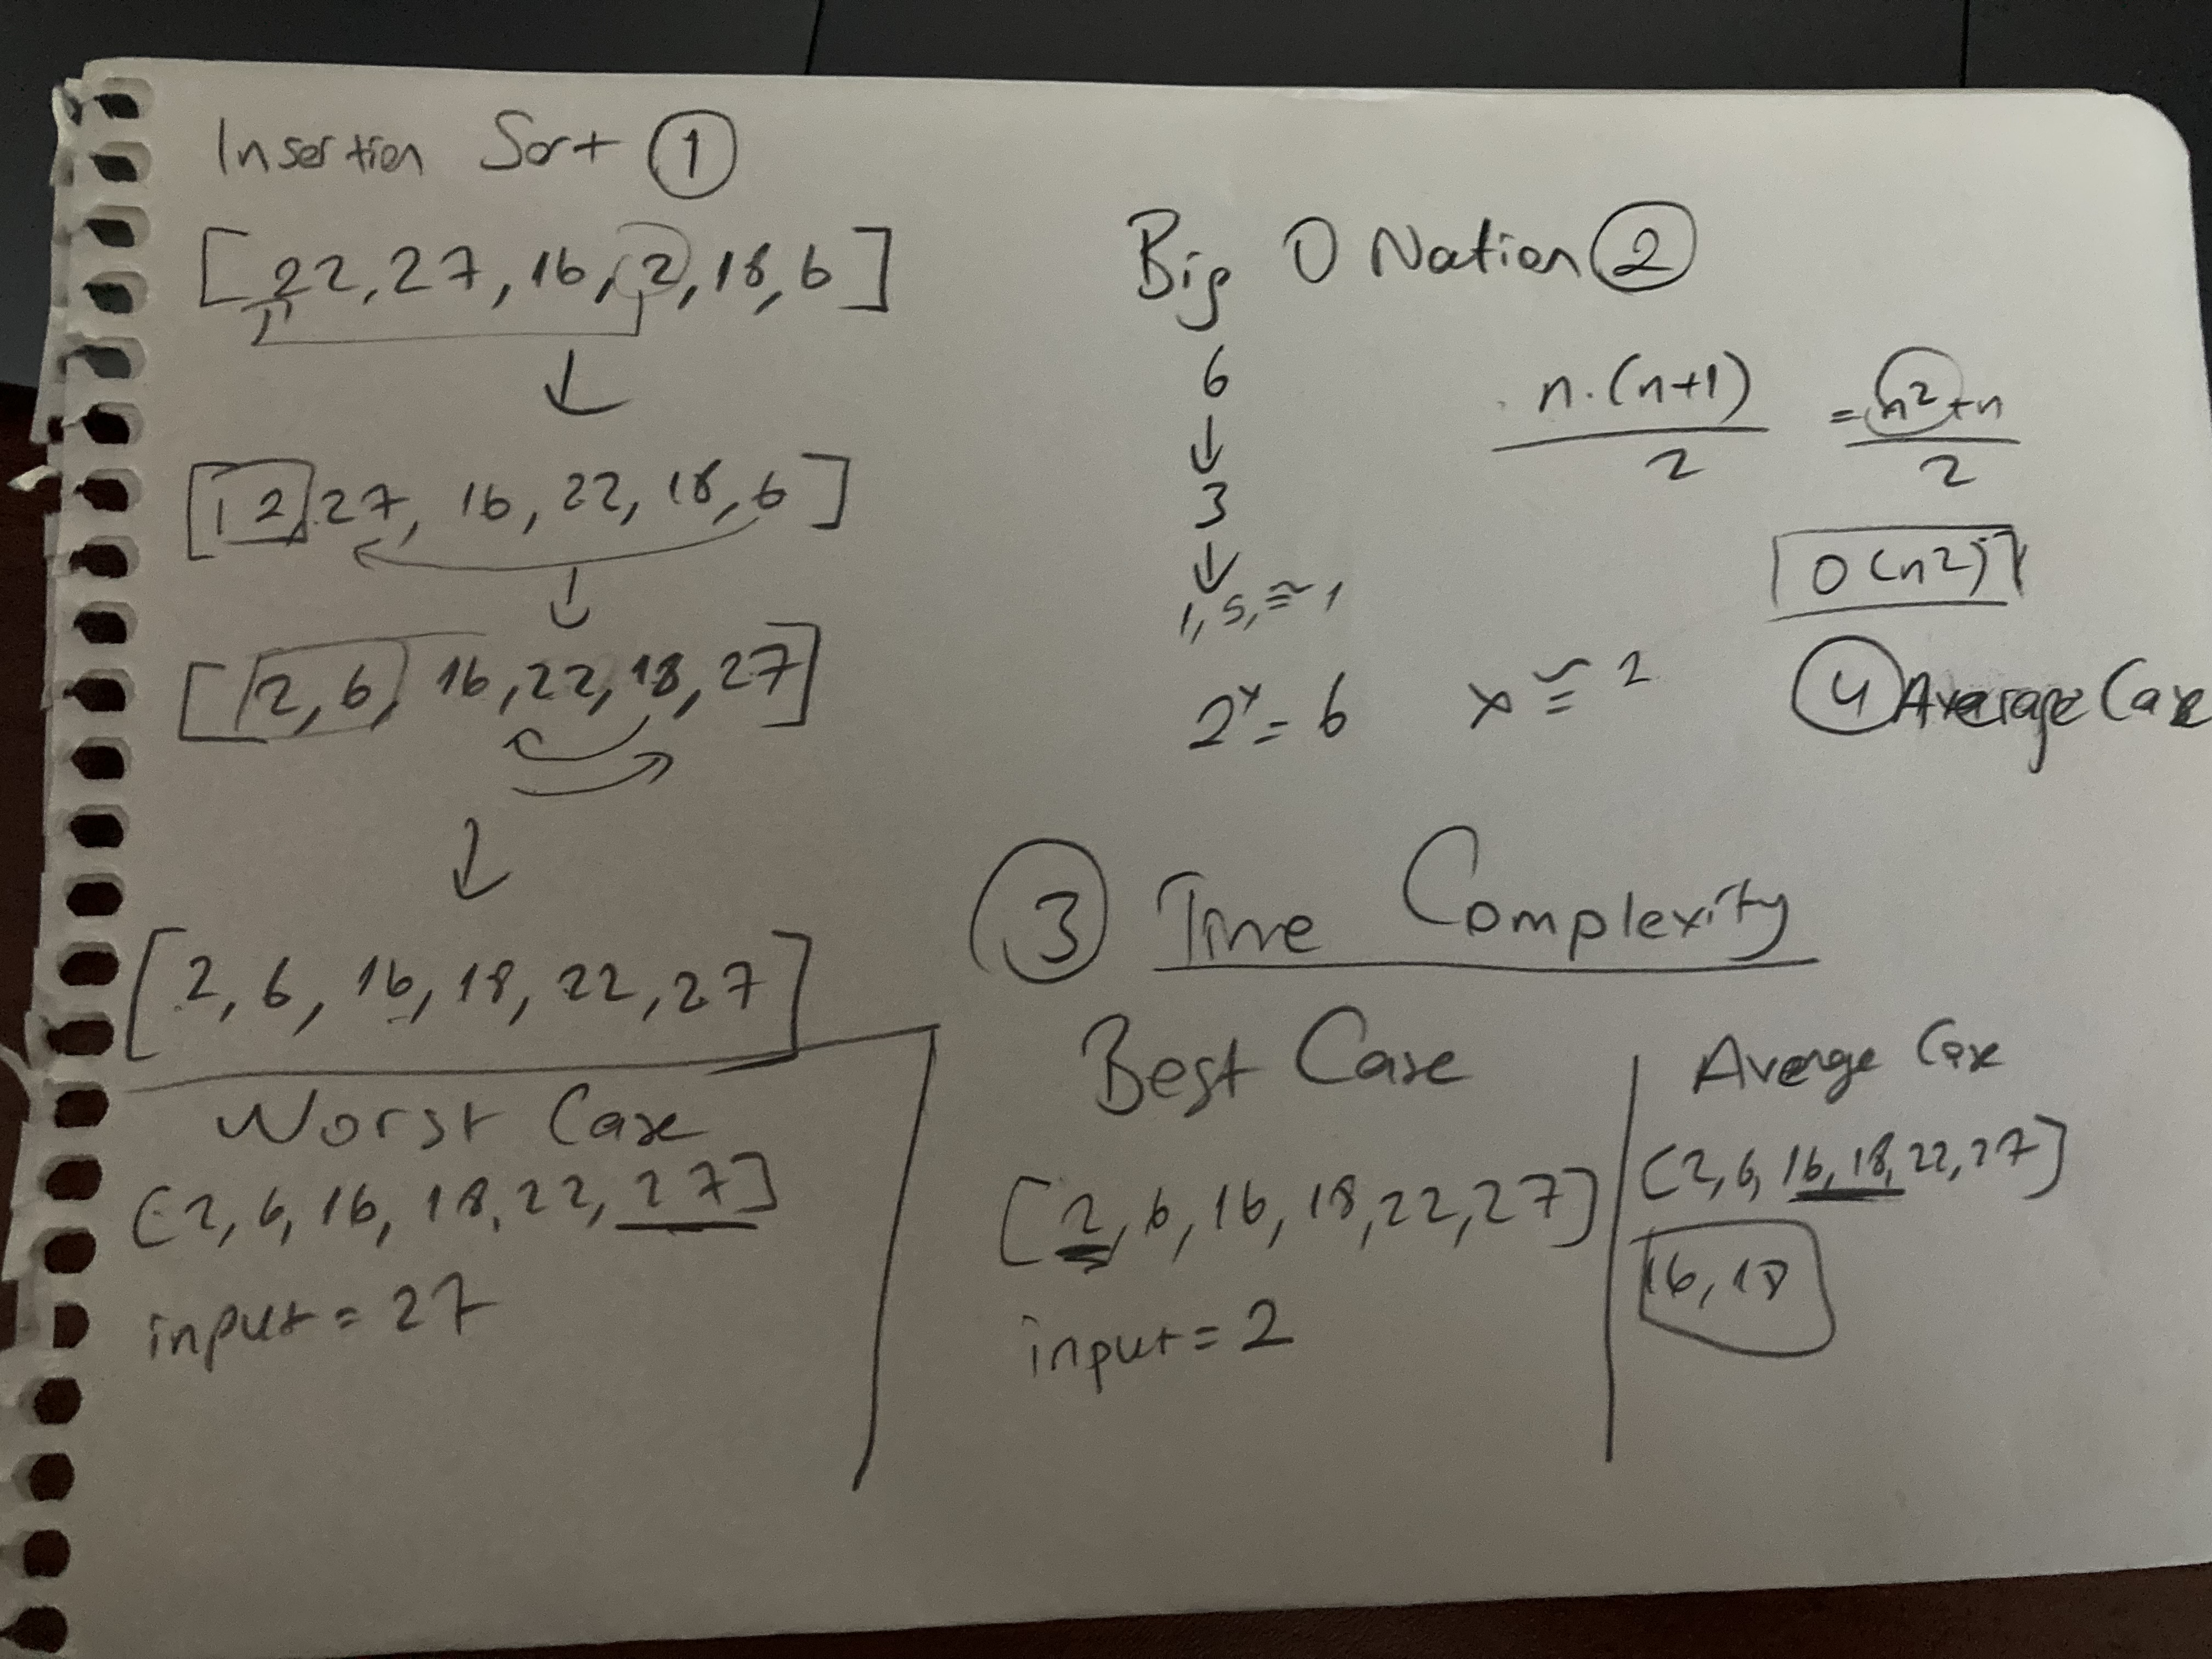 Insertion Sort 1
[22, 27, 16, 2, 18, 6]
↓
[2 27, 16, 22, 18, 6]
↓
[2, 6, 16, 22, 18, 27]
↓
[2, 6, 16, 18, 22, 27]
Worst Case
[2, 6, 16, 18, 22, 27]
input = 27
Big O Nation 2
6
↓
3
↓
1,5, ≅ 1
2ˣ = 6 x ≅ 2
n.(n+1)
2
= n2+n
2
O(n2)
4 Average Case
3 Time Complexity
Best Case
[2, 6, 16, 18, 22, 27]
input = 2
Average Case
[2, 6, 16, 18, 22, 27]
16, 18